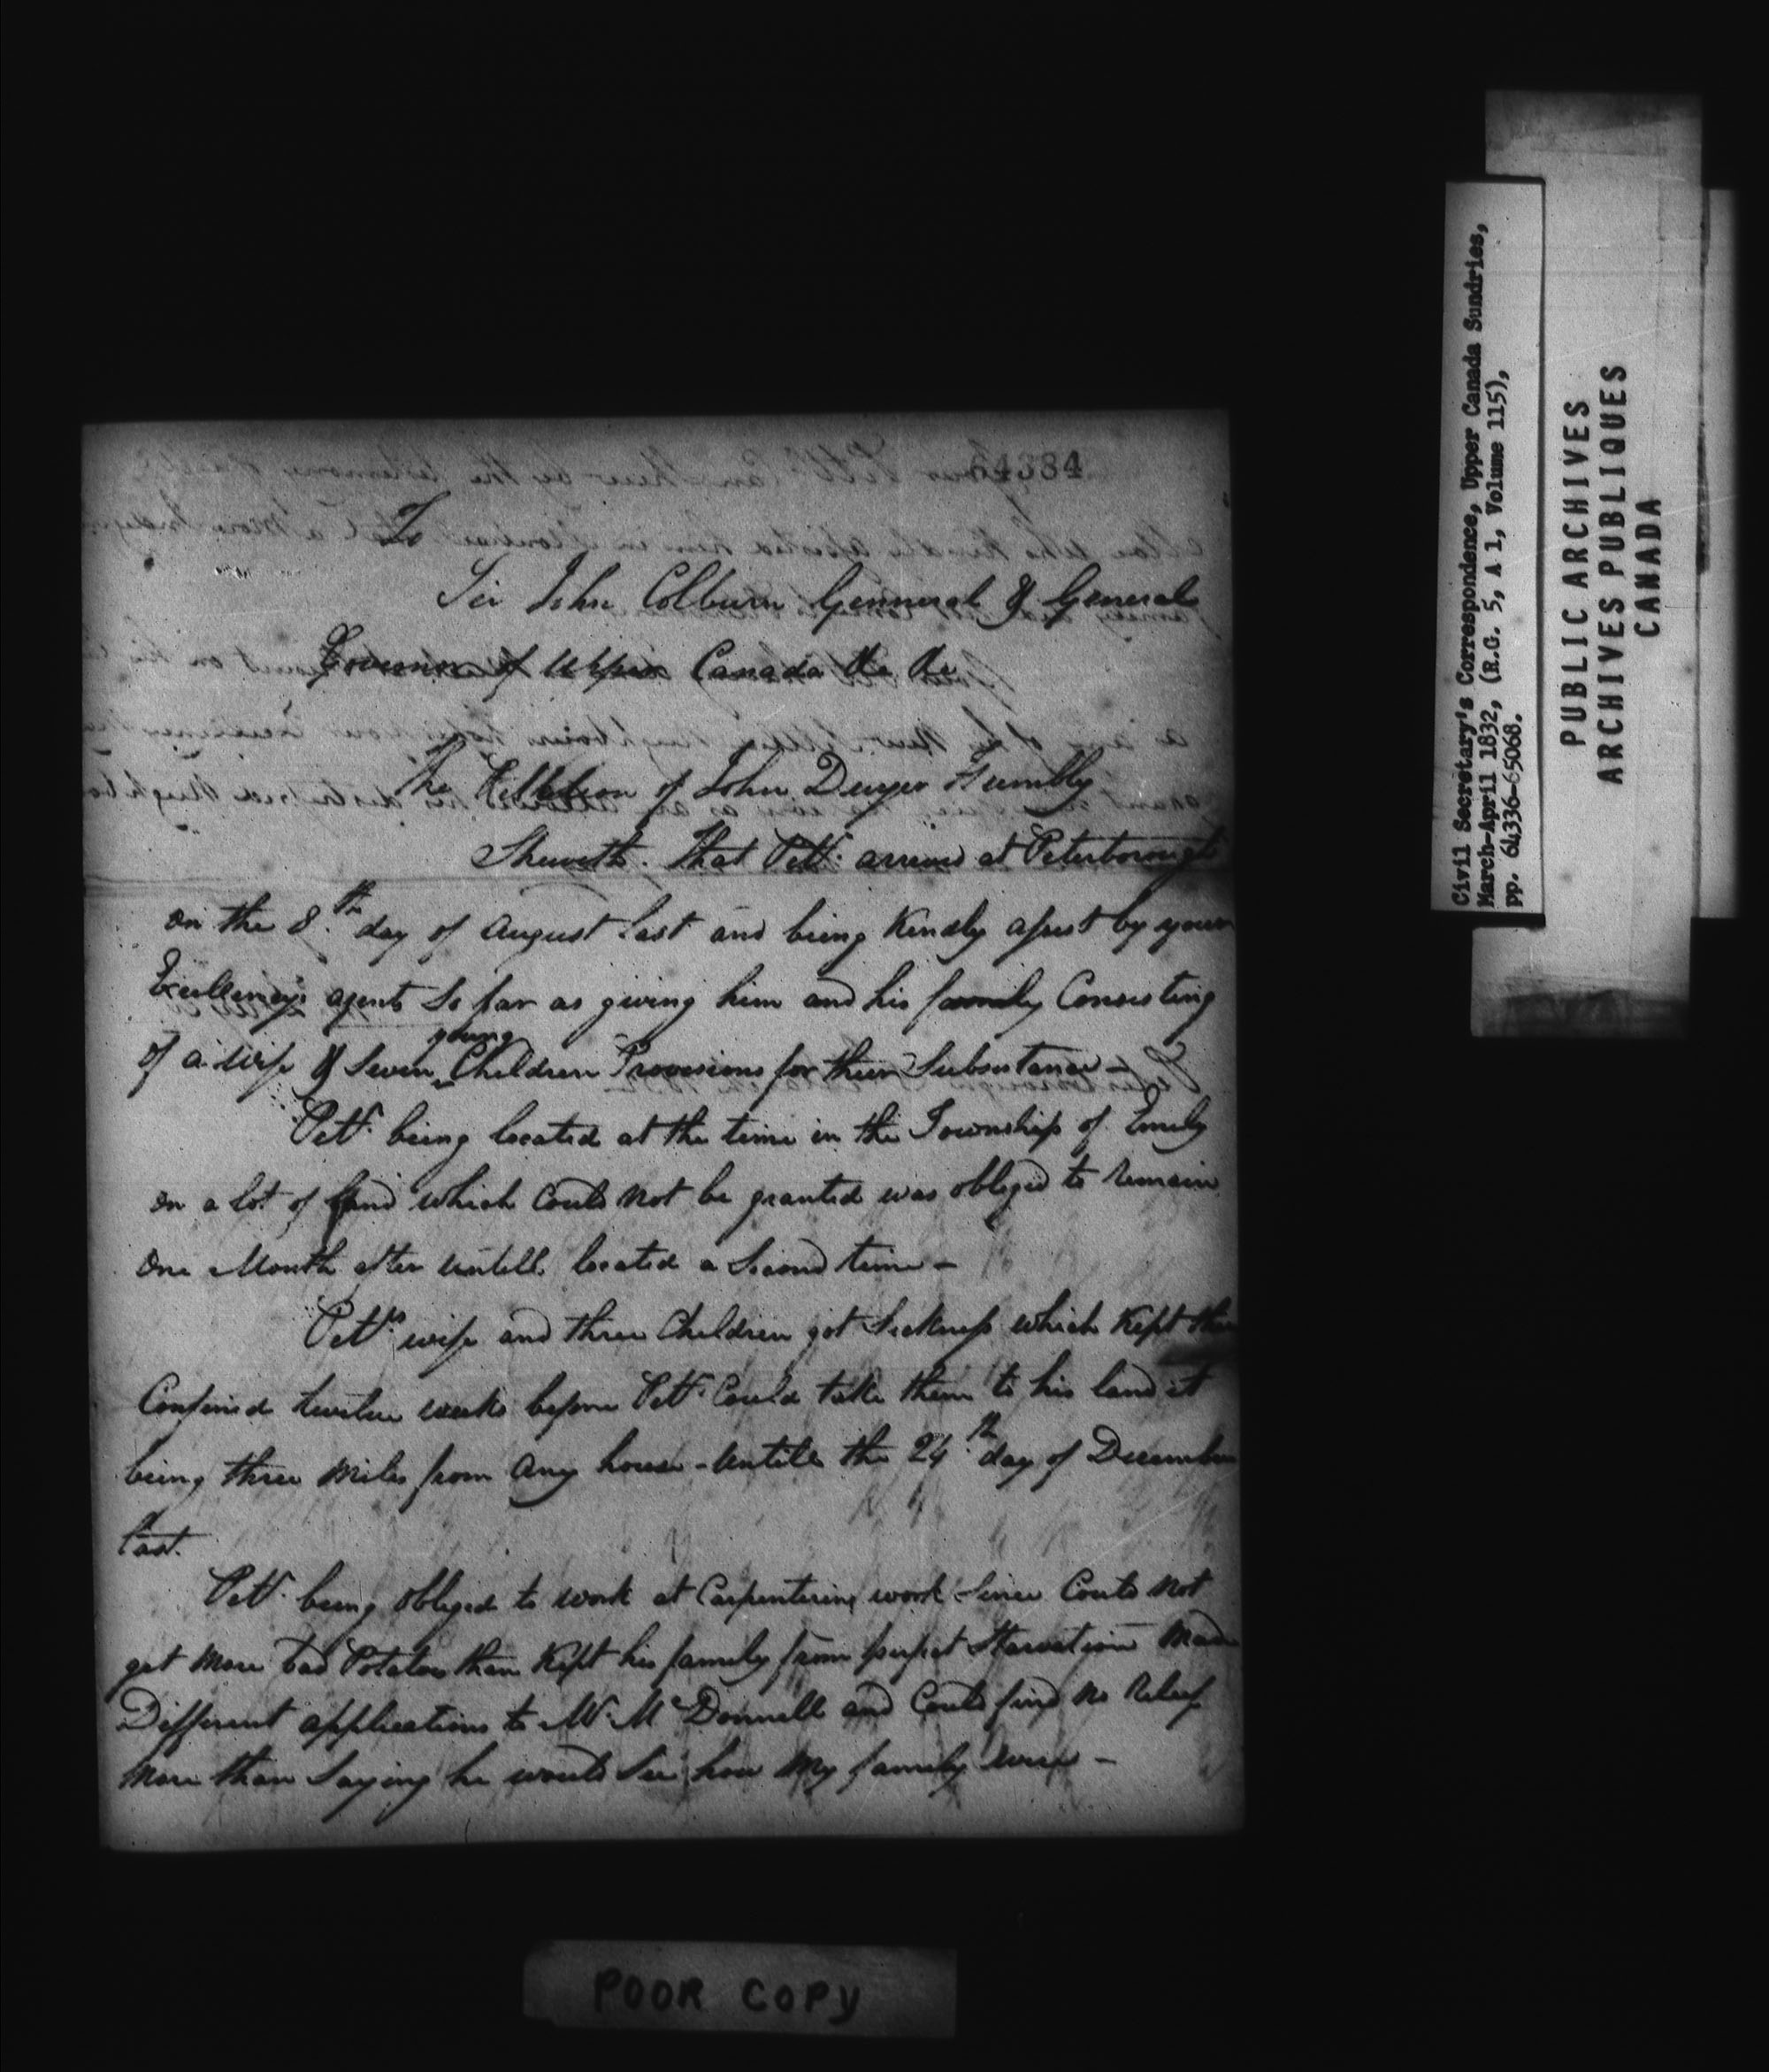 64384
To
Sir John Colburn Genneral & General
Governor of Upper Canada &c &c
The Petition of John Dwyer Humbly
Sheweth. That Pettr. arrived at Peterborough
on the 8th. day of August last and being Kindly assist by your
Excellency's agents So far as giving him and his family Consisting
young
of a wife & Seven Children Provisions for their Subsistance -
Pettr. being located at the time in the Township of Emily
on a lot of land which Could not be granted was obliged to remain
One Month after untill located a Second time -
Pettrs wife and three Children got Sickness which Kept them
Confined twelve weeks before Pettr. Could take them to his land it
being three Miles from any house - untill the 24th day of December
last.
Pettr. being obliged to work at Carpentering work Since Could Not
get More bad Potatoes than Kept his family from perfect Starvation Made
Different applications to Mr. McDonnell and Could find no Relief
More than Saying he would See how My family were -
Civil Secretary's Correspondence, Upper Canada Sundries,
March-April 1832, (R.G. 5, A 1, Volume 115),
pp. 64336-65068.
PUBLIC ARCHIVES
ARCHIVES PUBLIQUES
CANADA
POOR COPY